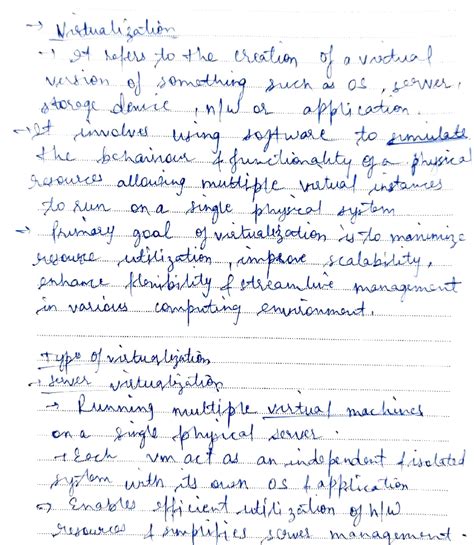 → Virtualization
→ It refers to the creation of a virtual
version of something such as OS, server,
storage device, n/w or application.
→ It involves using software to simulate
the behaviour & functionality of a physical
resources allowing multiple virtual instances
to run on a single physical system
→ Primary goal of virtualization is to maximize
resource utilization, improve scalability,
enhance flexibility & streamline management
in various computing environment.
Type of virtualization
. Server virtualization
→ Running multiple virtual machines
on a single physical server.
→ Each vm act as an independent & isolated
system with its own OS & application
→ Enables efficient utilization of h/w
resources & simplifies server management.